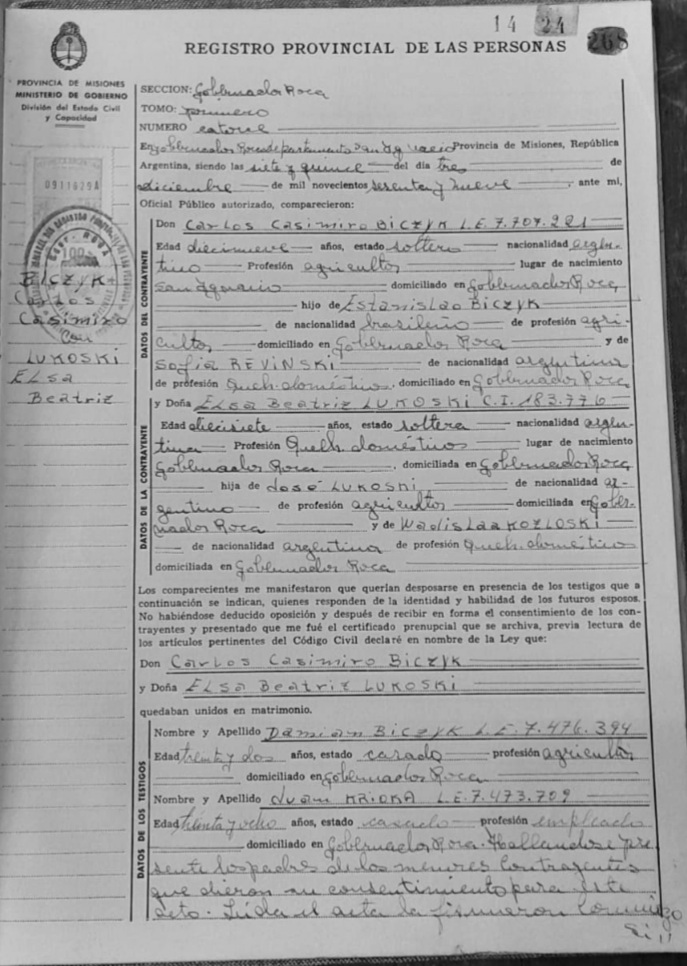 14 24
268
REGISTRO PROVINCIAL DE LAS PERSONAS
PROVINCIA DE MISIONES
MINISTERIO DE GOBIERNO
División del Estado Civil
y Capacidad
BICZYK
Carlos
Casimiro
con
LUKOSKI
ELSA
Beatriz
SECCION: Gobernador Roca
TOMO: primero
NUMERO catorce
En Gobernador Roca departamento San Ignacio Provincia de Misiones, República
Argentina, siendo las siete y quince del día tres de
diciembre de mil novecientos sesenta y nueve, ante mí,
Oficial Público autorizado, comparecieron:
DATOS DEL CONTRAYENTE
Don Carlos Casimiro BICZYK L.E. 7.709.221
Edad diecinueve años, estado soltero nacionalidad argen-
tino Profesión agricultor lugar de nacimiento
San Ignacio domiciliado en Gobernador Roca
hijo de Estanislao BICZYK
de nacionalidad brasileño de profesión agri-
cultor domiciliado en Gobernador Roca y de
Sofía REVINSKI de nacionalidad argentina
de profesión Queh. domésticos, domiciliado en Gobernador Roca
DATOS DE LA CONTRAYENTE
y Doña ELSA Beatriz LUKOSKI C.I. 183.776
Edad diecisiete años, estado soltera nacionalidad argen-
tina Profesión Queh. domésticos lugar de nacimiento
Gobernador Roca, domiciliada en Gobernador Roca
hija de José LUKOSKI de nacionalidad ar-
gentino de profesión agricultor domiciliada en Gober-
nador Roca y de Wadislaa KOZLOSKI
de nacionalidad argentina de profesión Queh. domésticos
domiciliada en Gobernador Roca
Los comparecientes me manifestaron que querían desposarse en presencia de los testigos que a
continuación se indican, quienes responden de la identidad y habilidad de los futuros esposos.
No habiéndose deducido oposición y después de recibir en forma el consentimiento de los con-
trayentes y presentado que me fué el certificado prenupcial que se archiva, previa lectura de
los artículos pertinentes del Código Civil declaré en nombre de la Ley que:
Don Carlos Casimiro BICZYK
y Doña ELSA Beatriz LUKOSKI
quedaban unidos en matrimonio.
DATOS DE LOS TESTIGOS
Nombre y Apellido Damian BICZYK L.E. 7.476.394
Edad treinta y dos años, estado casado profesión agricultor
domiciliado en Gobernador Roca
Nombre y Apellido Juan L.E. 7.473.709
Edad treinta y ocho años, estado casado profesión empleado
domiciliado en Gobernador Roca. Hallandose pre
sente los padres de los menores Contrayentes
que dieron su consentimiento para este
acto. Leida el acta la firmaron conmigo